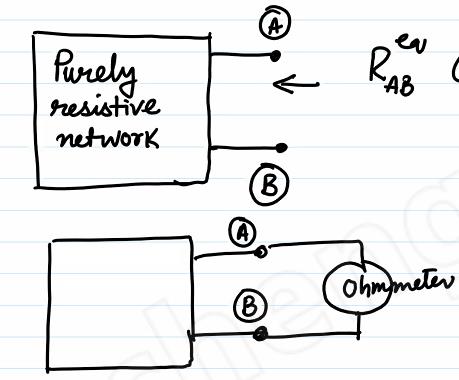 A
Purely
resistive
network
R_AB^eq
B
A
B
Ohmmeter